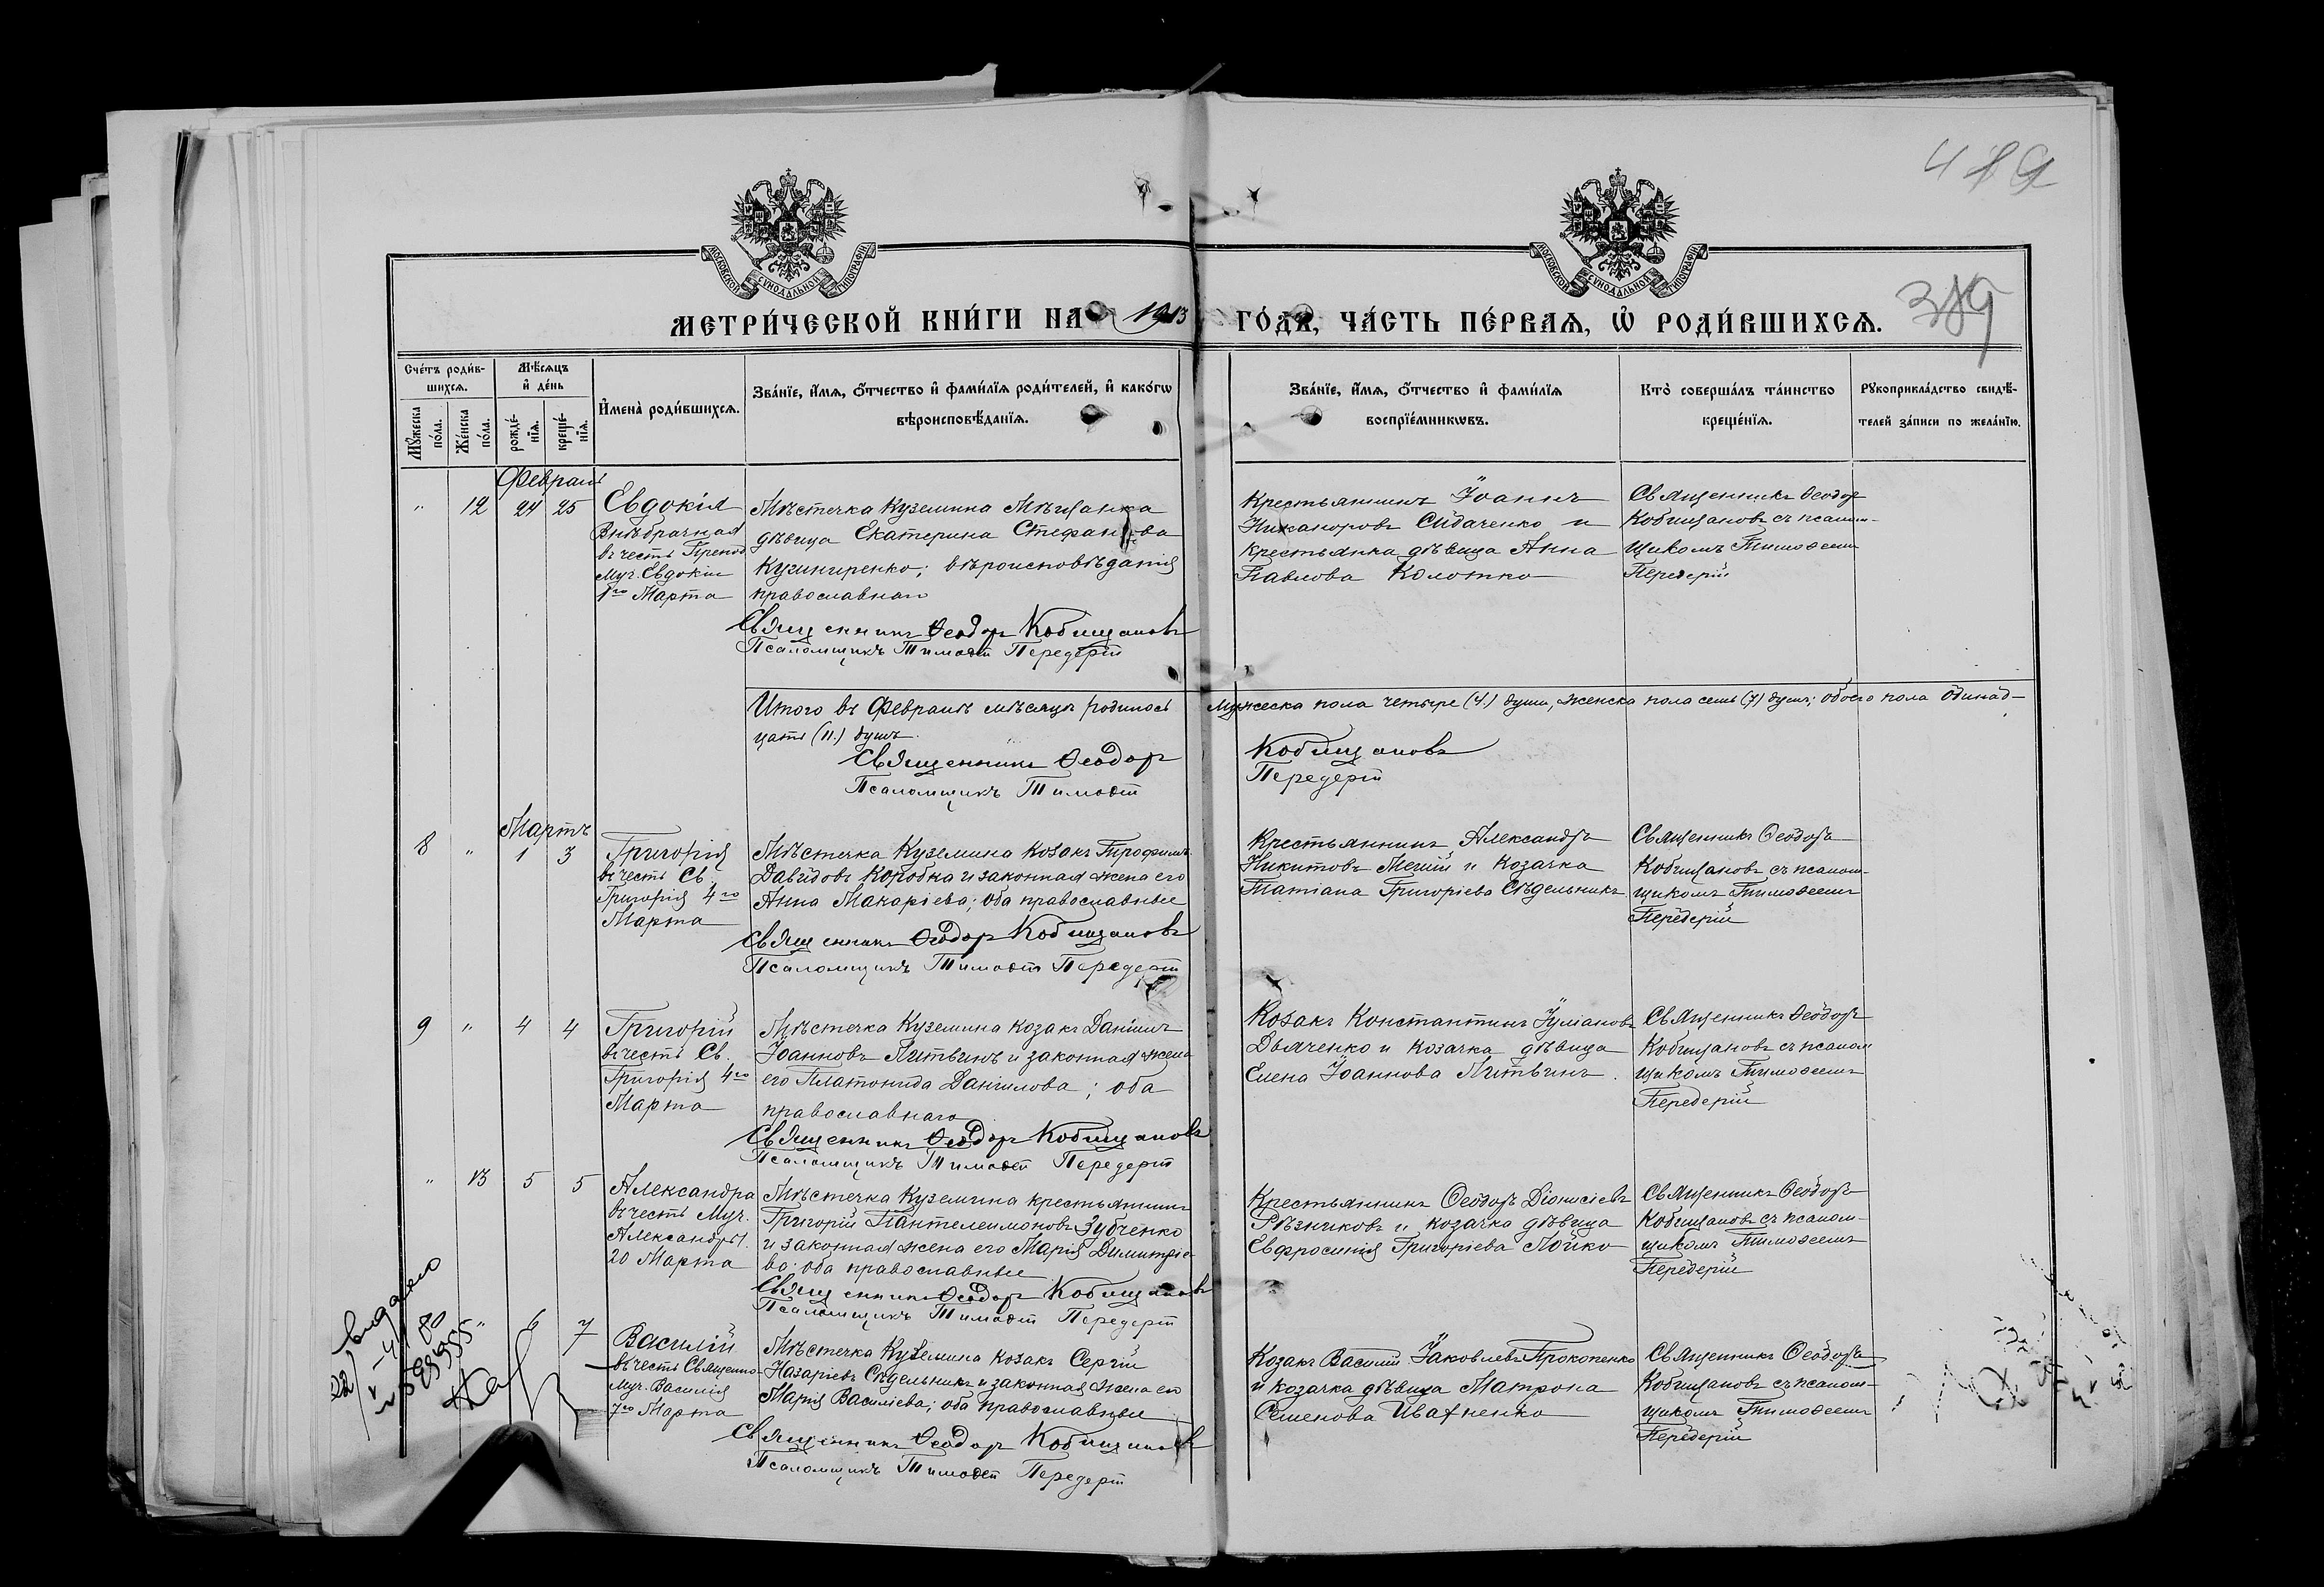 489
389
МОСКОВСКОЙ СѴНОДАЛЬНОЙ ТИПОГРАФІИ
МОСКОВСКОЙ СѴНОДАЛЬНОЙ ТИПОГРАФІИ
МЕТРИ́ЧЕСКОЙ КНИ́ГИ НА 1913 ГО́ДА, ЧА́СТЬ ПЕ́РВАѦ, Ѡ҆ РОДИ́ВШИХСѦ.
Сче́тъ роди́в-
шихсѧ.
Мꙋ́жеска
по́ла.
Же́нска
по́ла.
Мѣ́сѧцъ
и҆ де́нь
рожде́-
нїѧ.
креще́-
нїѧ.
И҆мена̀ роди́вшихсѧ.
Зва́нїе, и҆́мѧ, ѻ҆́тчество и҆ фами́лїѧ роди́телей, и҆ како́гѡ
вѣроисповѣ́данїѧ.
Зва́нїе, и҆́мѧ, ѻ҆́тчество и҆ фами́лїѧ
воспрїе́мникѡвъ.
Кто̀ соверша́лъ та́инство
креще́нїѧ.
Рꙋкоприкла́дство свидѣ́-
телей за́писи по жела́нїю.
Февраль
" 12 24 25
Евдокія
Внѣбрачная
въ честь Препод
Муч. Евдокіи
1го Марта
Мѣстечка Куземина Мѣщанка
дѣвица Екатерина Стефанова
вѣроисповѣданія
православнаго
Священникъ Ѳеодоръ Кобищановъ
Псаломщикъ Тимоѳей Передерій
Крестьянинъ Іоаннъ
Никаноровъ Сидаченко и
крестьянка дѣвица Анна
Павлова Колотко
Священникъ Ѳеодоръ
Кобищановъ съ псалом-
щикомъ Тимоѳеемъ
Передерій
Итого въ Февралѣ мѣсяцѣ родилось мужеска пола четыре (4.) души, женска пола семь (7) душъ; обоего пола одинад-
цать (11.) душъ.
Священникъ Ѳеодоръ Кобищановъ
Псаломщикъ Тимоѳей Передерій
Мартъ
8 " 1 3
Григорій
въ честь Св.
Григорія 4го
Марта
Мѣстечка Куземина козакъ Трофимъ
Давидовъ Коробка и законная жена его
Анна Макаріева; оба православные
Священникъ Ѳеодоръ Кобищановъ
Псаломщикъ Тимоѳей Передерій
Крестьянинъ Александръ
Никитовъ и козачка
Татіана Григоріева Сѣдельникъ
Священникъ Ѳеодоръ
Кобищановъ съ псалом-
щикомъ Тимоѳеемъ
Передерій
9 " 4 4
Григорій
въ честь Св.
Григорія 4го
Марта
Мѣстечка Куземина козакъ Даніилъ
Іоанновъ Литвинъ и законная жена
его Платонида Даніилова; оба
православнаго
Священникъ Ѳеодоръ Кобищановъ
Псаломщикъ Тимоѳей Передерій
Козакъ Константинъ Іуліановъ
Дьяченко и козачка дѣвица
Елена Іоаннова Литвинъ.
Священникъ Ѳеодоръ
Кобищановъ съ псалом
щикомъ Тимоѳеемъ
Передерій
" 13 5 5
Александра
въ честь Муч.
Александры
20 Марта
Мѣстечка Куземина крестьянинъ
Григорій Пантелеимоновъ Зубченко
и законная жена его Марія Димитріе-
ва; оба православные
Священникъ Ѳеодоръ Кобищановъ
Псаломщикъ Тимоѳей Передерій
Крестьянинъ Ѳеодоръ Діонисіевъ
Рѣзниковъ и козачка дѣвица
Евфросинія Григоріева Лойко
Священникъ Ѳеодоръ
Кобищановъ съ псалом-
щикомъ Тимоѳеемъ
Передерій
" 6 7
Василій
въ честь Священно-
Муч. Василія
7го Марта
Мѣстечка Куземина козакъ Сергій
Назаріевъ Сѣдельникъ и законная жена его
Марія Василіева; оба православные
Священникъ Ѳеодоръ Кобищановъ
Псаломщикъ Тимоѳей Передерій
Козакъ Василій Іаковлевъ Прокопенко
и козачка дѣвица Матрона
Семенова Ивахненко
Священникъ Ѳеодоръ
Кобищановъ съ псалом-
щикомъ Тимоѳеемъ
Передерій
видано